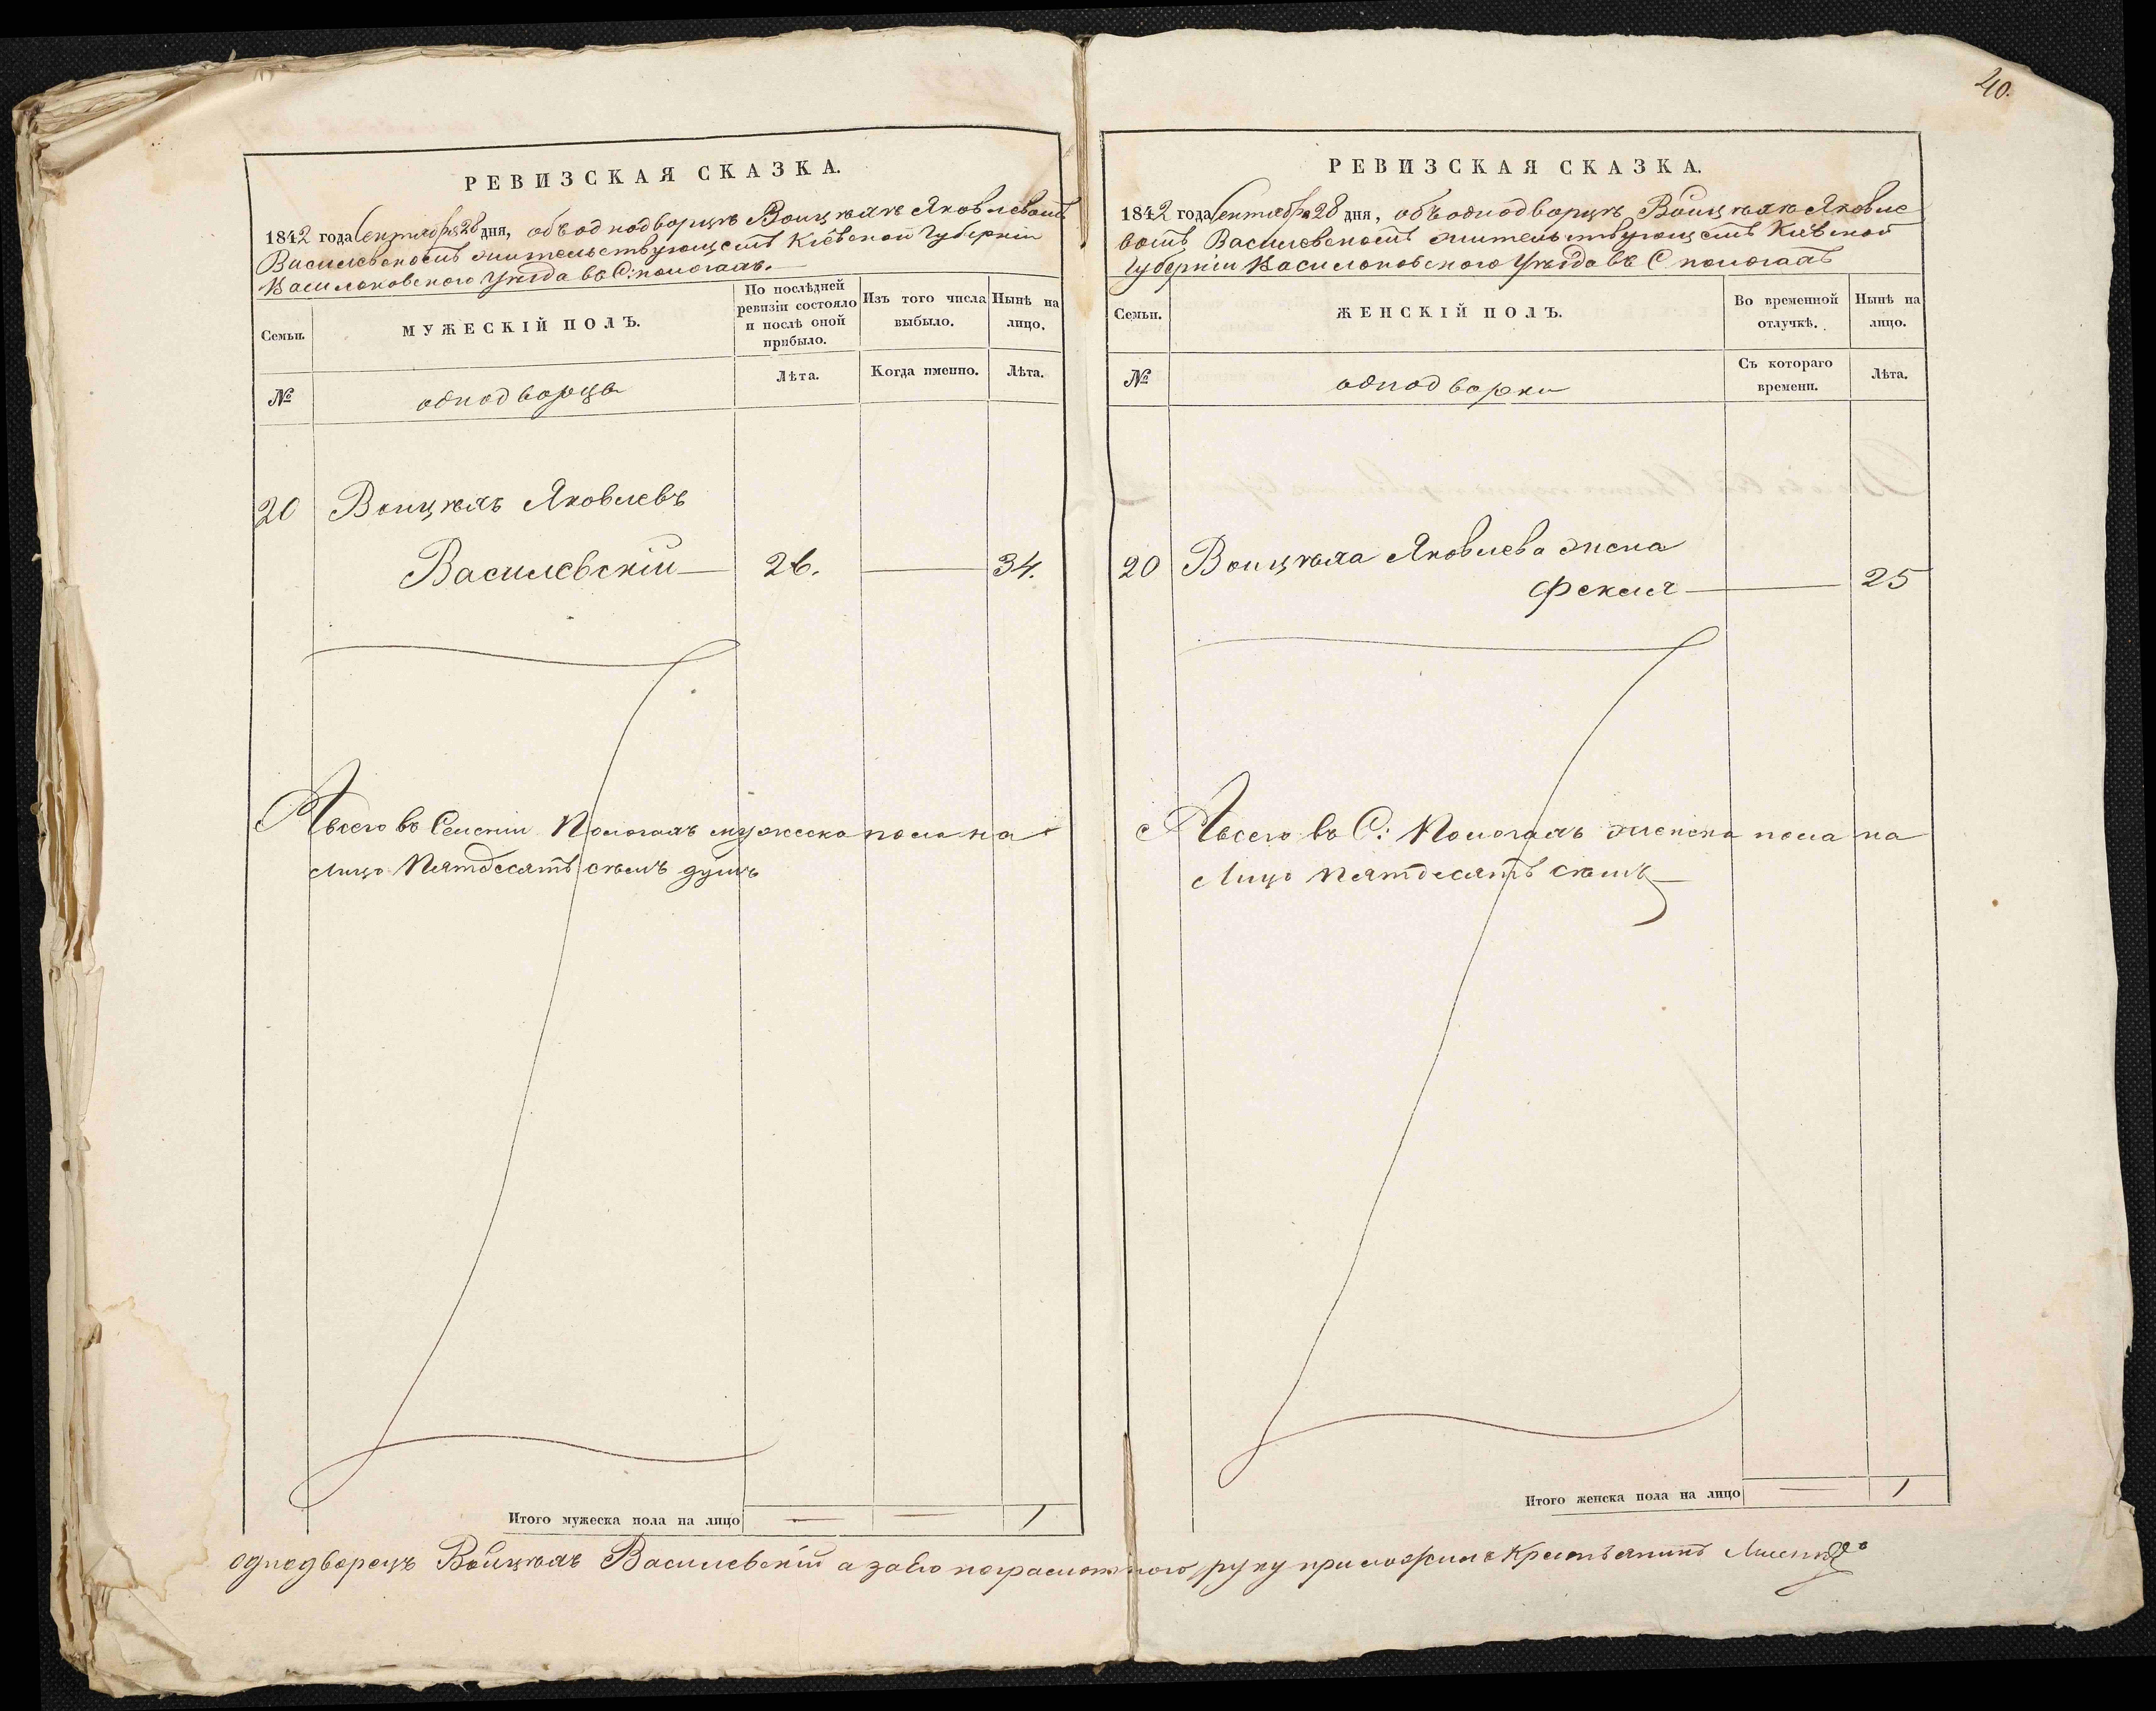 РЕВИЗСКАЯ СКАЗКА.
1842 года Сентября 28 дня, объ однодворцѣ Воицѣхѣ Яковлевомъ
Василевскомъ жительствующемъ Кіевской Губерніи
Василковского Уѣзда въ С:
Семьи.
МУЖЕСКІЙ ПОЛЪ.
По послѣдней ревизіи состояло и послѣ оной прибыло.
Изъ того числа выбыло.
Нынѣ на лицо.
№
однодворцы
Лѣта.
Когда именно.
Лѣта.
20 Воицѣхъ Яковлевъ
Василевскій 26. 34.
всего въ Селеніи мужеска пола на
лицо Пятдесятъ сѣмъ душъ
Итого мужеска пола на лицо — — 1
40.
РЕВИЗСКАЯ СКАЗКА.
1842 года Сентября 28 дня, объ однодворцѣ Войцѣхѣ Яковле
вомъ Василевскомъ жительствующемъ Кіевской
Губерніи Василковского Уѣзда въ С
Семьи.
ЖЕНСКІЙ ПОЛЪ.
Во временной отлучкѣ.
Нынѣ на лицо.
№
однодворки
Съ котораго времени.
Лѣта.
20 Воицѣха Яковлева жена
Фекла 25
всего въ С: женска пола на
лицо пятдесятъ сѣмъ
Итого женска пола на лицо — 1
однодворецъ Войцѣхъ Василевскій а за его неграмотного руку приложилъ Крестьянинъ